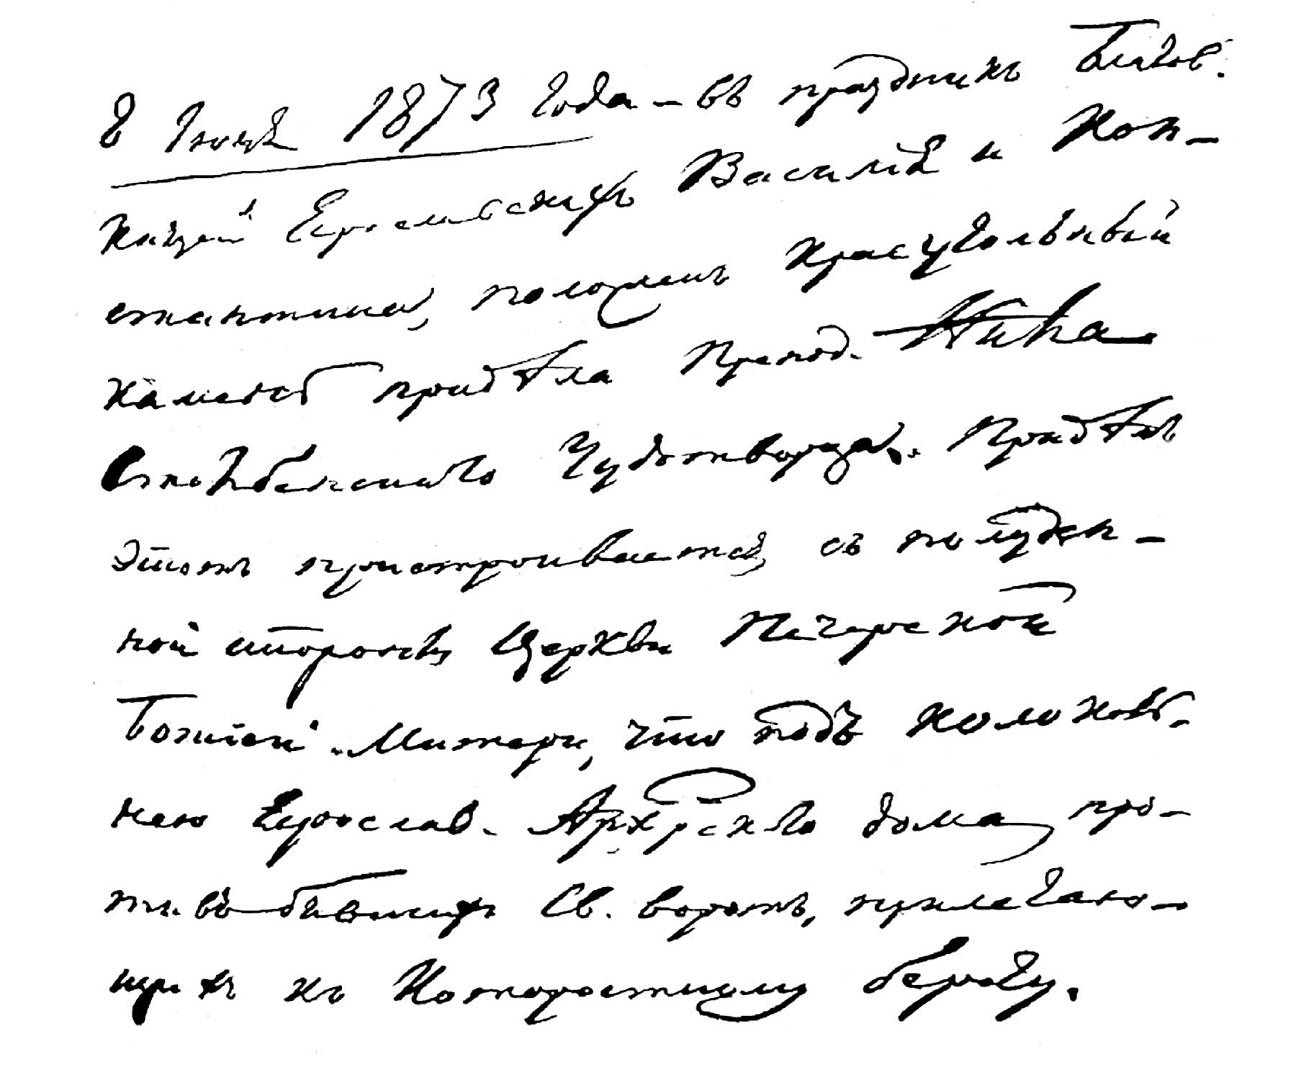 8 Іюля 1873 года – въ праздникъ Благов.
Князей Ярославскихъ Василія и Кон-
стантина, положенъ краеугольный
камень придѣла Препод. Нила
Столбенскаго Чудотворца. Придѣлъ
этотъ пристроивается съ полуден-
ной стороны Церкви Печерской
Божіей Матери, что подъ колоколь-
нею Ярослав. Архіерейскаго дома, про-
тивъ бывшихъ Св. воротъ, прилегаю-
щихъ къ Которостному берегу.